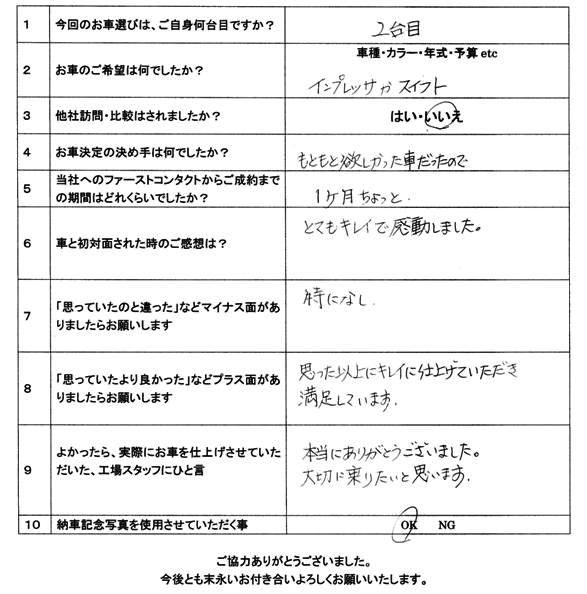 1 今回のお車選びは、ご自身何台目ですか？ 2台目
2 お車のご希望は何でしたか？ 車種・カラー・年式・予算 etc
インプレッサか スイフト
3 他社訪問・比較はされましたか？ はい・いいえ
4 お車決定の決め手は何でしたか？ もともと欲しかった車だったので
5 当社へのファーストコンタクトからご成約まで
の期間はどれくらいでしたか？ 1ヶ月ちょっと.
6 車と初対面された時のご感想は？ とてもキレイで感動しました。
7 「思っていたのと違った」などマイナス面があ
りましたらお願いします 特になし.
8 「思っていたより良かった」などプラス面があ
りましたらお願いします 思った以上にキレイに仕上げていただき
満足しています.
9 よかったら、実際にお車を仕上げさせていた
だいた、工場スタッフにひと言 本当にありがとうございました。
大切に乗りたいと思います.
10 納車記念写真を使用させていただく事 OK NG
ご協力ありがとうございました。
今後とも末永いお付き合いよろしくお願いいたします。